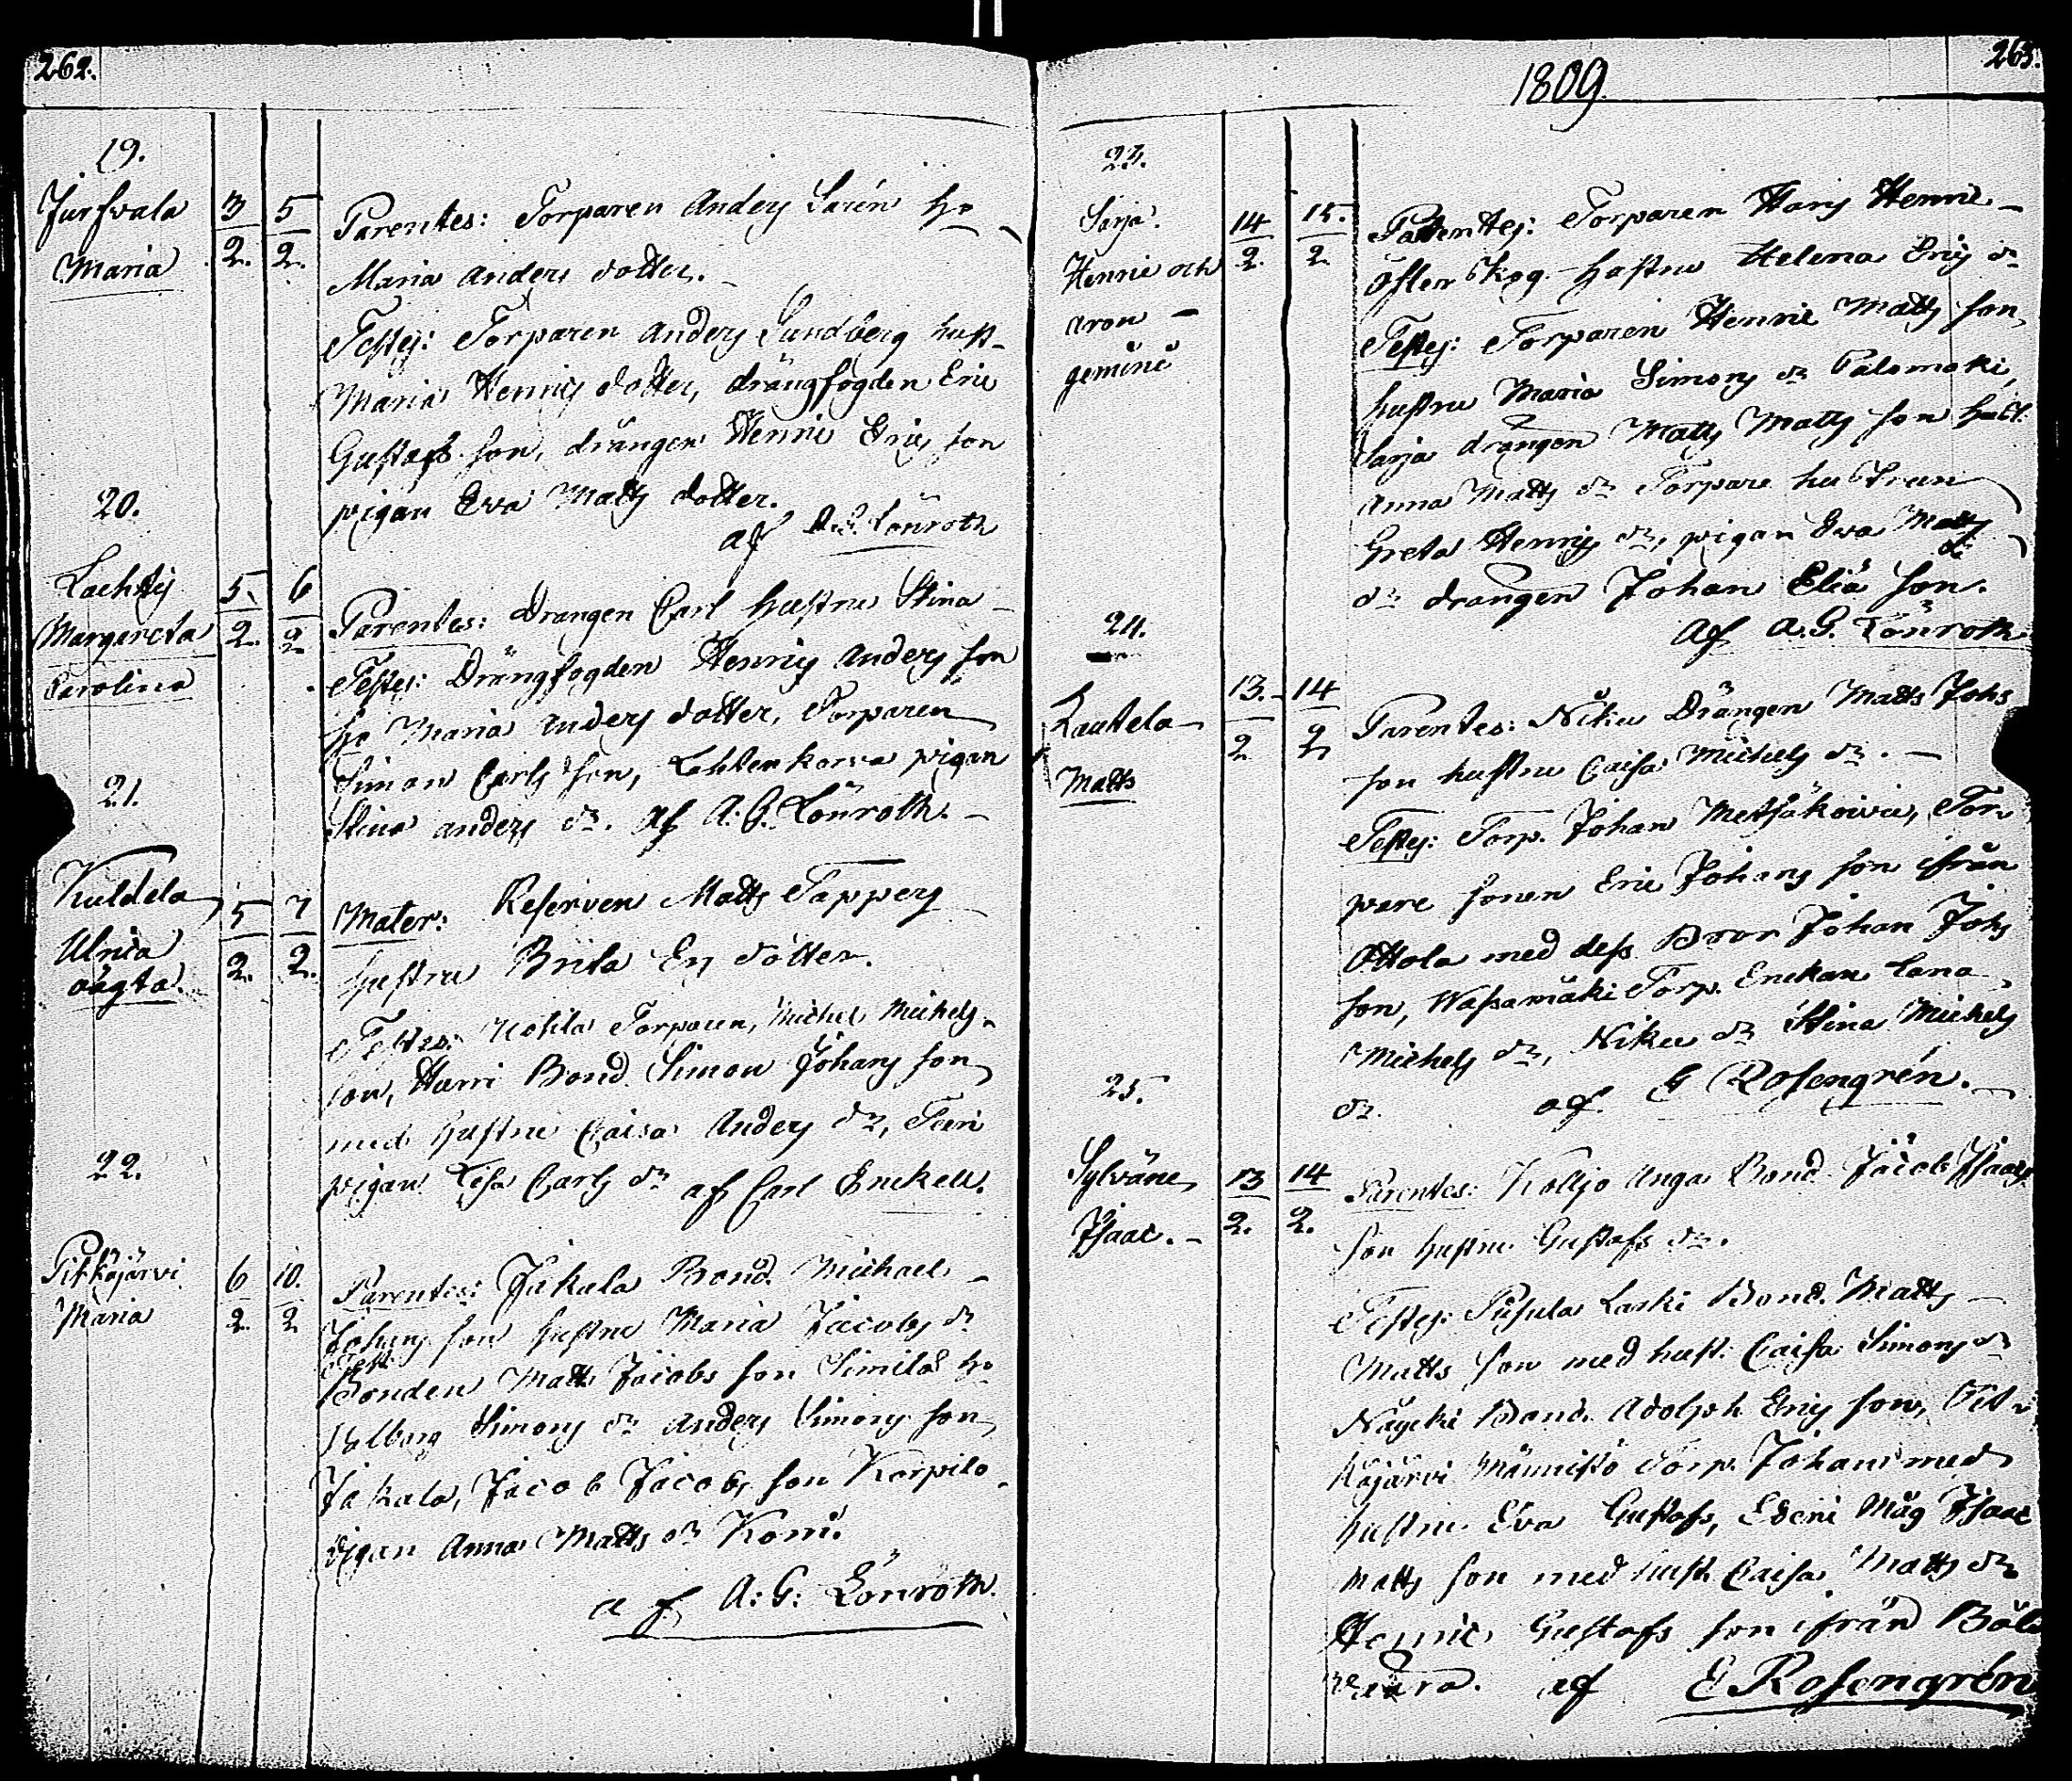 262.
19.
Jursvala
Maria
3/2. 5/2.
Parentes: Torparen Anders Sarén H:o
Maria Anders dotter. -
Testes: Torparen Anders Sundberg hust-
Maria Henrics dotter, drängfogden Eric
Gustafs son, drängen Henric Erics son
pigan Eva Matts dotter.
af A.G. Lönroth
20.
Lachtis
Margareta
Carolina
5./2. 6/2
Parentes: Drangen Carl hustru Stina -
Testes: Drängfogden Henrics Anders son
H:o Maria Anders dotter, Torparen
Simon Carls son, Lahtenkorva pigan
Stina Anders dr. af A.G. Lönroth. -
21.
Kuldela
Ulrica
oägta.
5/2. 7/2.
Mater: Reserven Matts Tappers
hustru Brita Ers dotter.
Testes: Torparen, Michel Michels
son, Harri Bond. Simon Johans son
med hustru Caisa Anders dr,
pigan Lisa Carls dr af Carl Enckell.
22.
Pitkäjärvi
Maria
6/2. 10./2
Parentes: Jakala Bond. Michael -
Johans son hustru Maria Jacobs dr
Test:
Bonden Matts Jacobs son Similä H:o
Valborg Simons dr Anders Simons son
Jakala, Jacob Jacobs son Korpilo
pigan Anna Matts dr Komi.
af A: G: Lönroth.
1809.
263.
23.
Sarja.
Henric och
Aron -
gemine
14/2. 15./2
Parentes: Torparen Hans Henric -
Österskog - hustru Helena Erics dr
Testes: Torparen Henric Matts son
hustru Maria Simons dr Palomaki,
Sarja drängen Matts Matts son hust.
Anna Matts dr Torpare hustrun
Greta Henrics dr, pigan Eva Matts
dr drangen Johan Eliä son.
af A.G. Lönroth
24.
Kautela
Matts
13./2 14/2
Parentes: Niku Drängen Matts Johs
son hustru Caisa Michels dr. -
Testes: Torp. Johan Metsäkoivu, Tor
pare sonen Eric Johans son ifrån
Ottola med dess Bror Johan Johs
son, Wasamäki Torp. Enckan Lena
Michels dr, Niku dr Stina Michels
dr. af E Rosengrén. -
25.
Sylväne
Isaac. -
13/2. 14/2.
Parentes: Koljo Unga Bond. Jacob Isaacs
son hustru Gustafs dr.
Testes: Pusula Laski Bond. Matts -
Matts son med hust. Caisa Simons dr
Bond. Adolph Erics son, Pit
käjärvi Männistö Torp. Johan med
hustru Eva Gustafs, Edeni Måg Isaac
Matts son med hust. Caisa Matts dr
Henric Gustafs son ifrån
af E Rosengrén